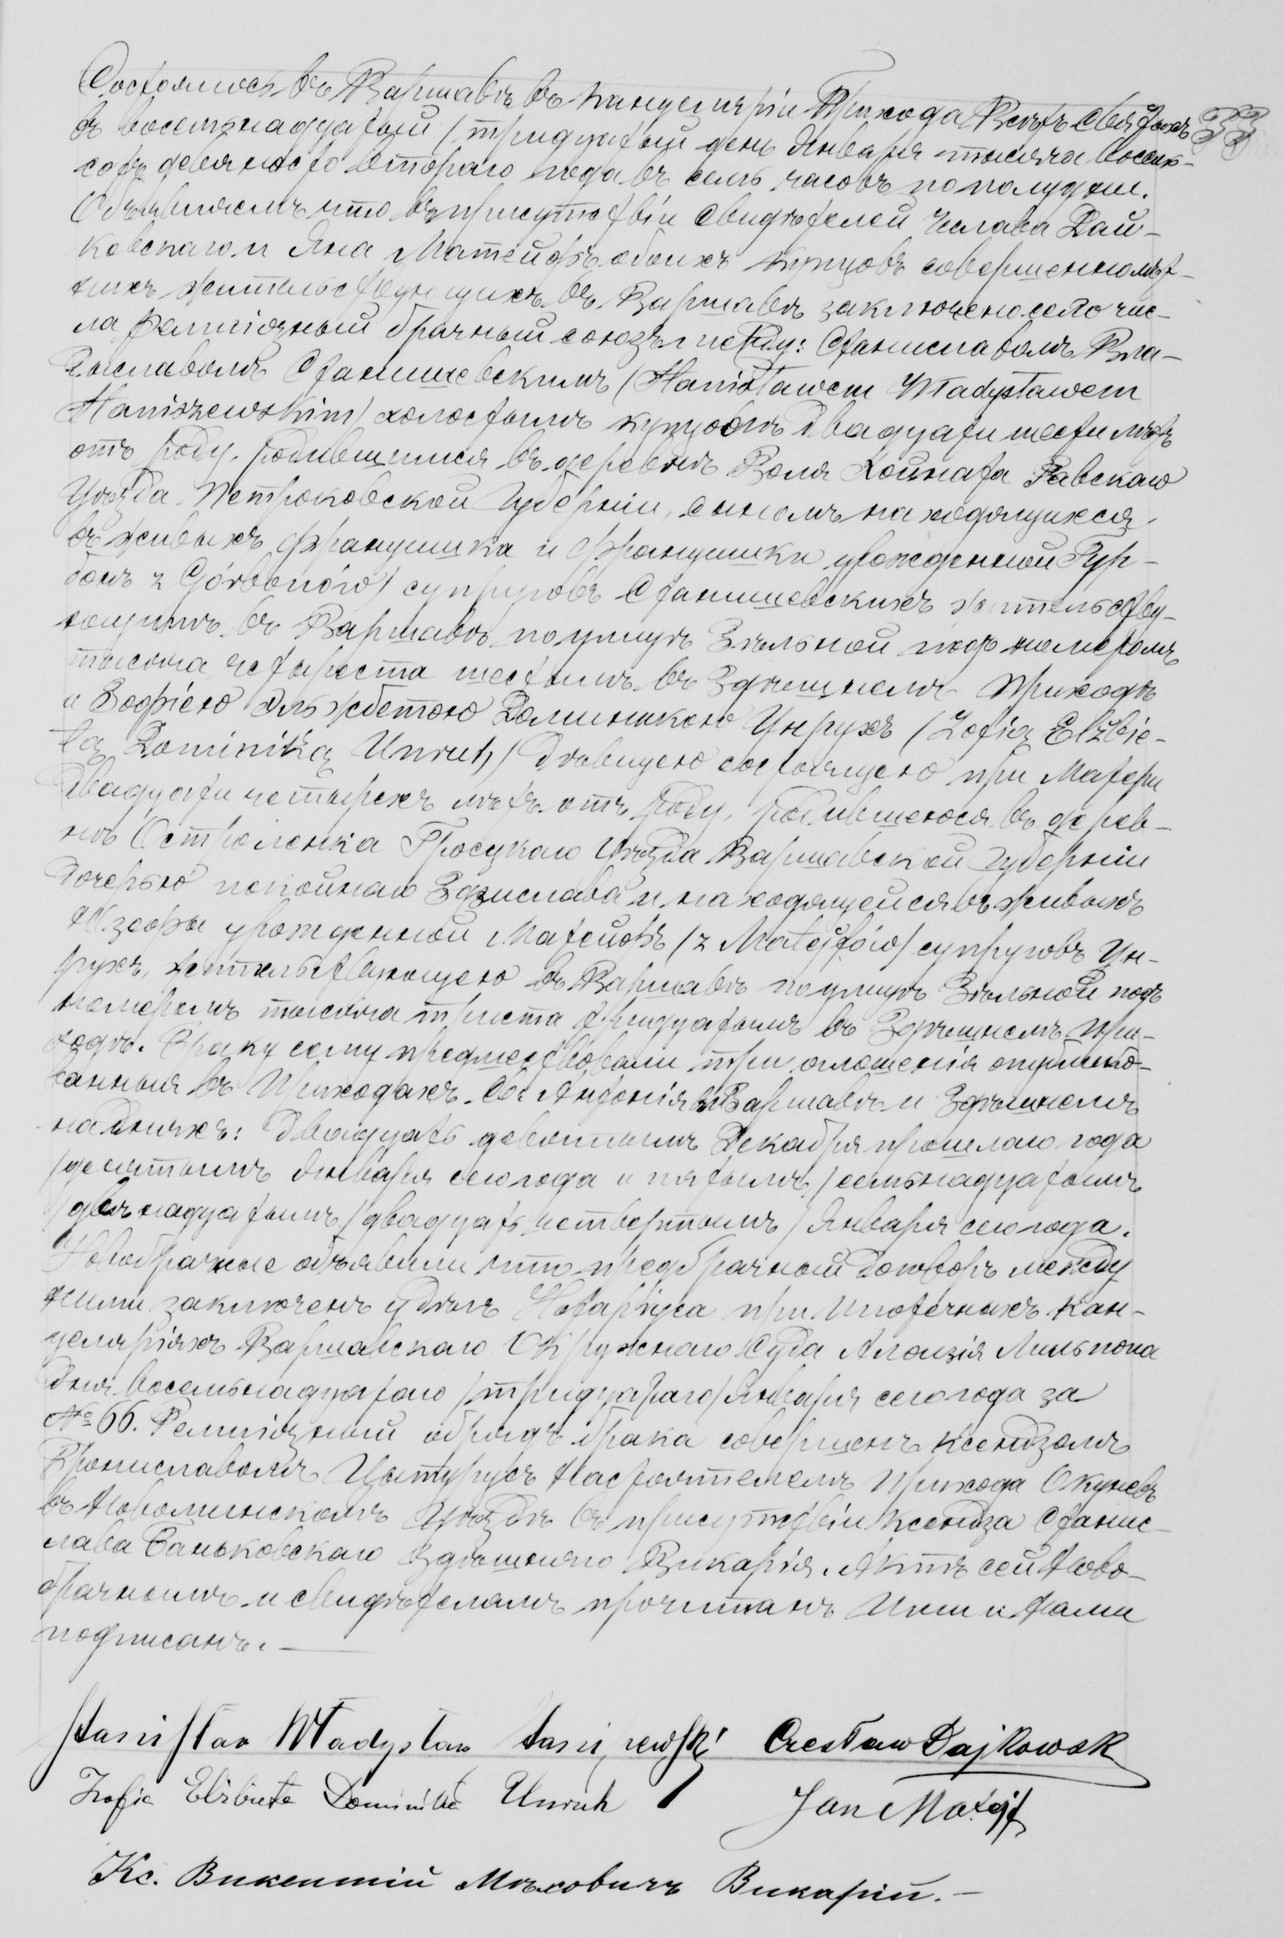 Состоялось въ Варшавѣ въ канцеляріи Прихода Всѣхъ Святыхъ
въ восемнадцатый /тридцатый день Января тысяча восемь-
сотъ девяносто втораго года въ семь часовъ по полудни.
Объявляемъ что въ присутствіи свидѣтелей Чеслава Дай-
ковскаго и Яна Матейфъ обоихъ купцовъ совершеннолѣт-
нихъ жительствующихъ въ Варшавѣ заключено сего чис-
ла религіозный брачный союзъ между: Станиславомъ Вла-
диславомъ Станишевскимъ /Stanisławem Władysławem
Staniszewskim/ холостымъ купцомъ двадцати шести лѣтъ
отъ роду, родившимся въ деревнѣ Воля Хойната Равскаго
Уѣзда Петроковской Губерніи, сыномъ находящихся
въ живыхъ Францишка и Францишки урожденной Гур-
бонъ z Górbonów/ супруговъ Станишевскихъ жительству-
ющимъ въ Варшавѣ по улицѣ Зѣльной подъ номеромъ
тысяча четыреста шестымъ въ Здѣшнемъ Приходѣ
и Зофіею Эльжбетою Доминикою Унрухъ /Zofią Elżbie-
tą Dominiką Unruh/ дѣвицею состоящею при Матери
двадцати четырехъ лѣтъ отъ роду, родившеюся въ дерев-
нѣ Остроленка Гроецкаго Уѣзда Варшавской Губерніи
дочерью покойнаго Здзислава и находящейся въ живыхъ
Изабры урожденной Матейфъ /z Matejfów/ супруговъ Ун-
рухъ, жительствующею въ Варшавѣ по улицѣ Зѣльной подъ
номеромъ тысяча триста тридцатымъ въ Здѣшнемъ При-
ходѣ. Браку сему предшествовали три оглашенія опублико-
ванныя въ Приходахъ Св. Антонія въ Варшавѣ и Здѣшнемъ
на дняхъ: двадцать девятымъ Декабря прошлаго года
/десятымъ Января сего года и пятымъ /семнадцатымъ
/двѣнадцатымъ /двадцать четвертымъ/ Января сего года.
Новобрачные объявили что предбрачный договоръ между
ними заключенъ у дѣлъ Нотаріуса при Ипотечныхъ Кан-
целяріяхъ Варшавскаго Окружнаго Суда Алоизія Лильпопа
дня восемьнадцатаго /тридцатаго/ Января сего года за
№ 66. Религіозный обрядъ брака совершенъ Ксендзомъ
Брониславомъ Цытурусъ Настоятелемъ Прихода Окунёвъ
въ Новоминскомъ Уѣздѣ въ присутствіи Ксендза Станис-
лава Баньковскаго Здѣшняго Викарія. Актъ сей Ново-
брачнымъ и свидѣтелямъ прочитанъ Ими и Нами
подписанъ.
Stanisław Władysław Staniszewski Czesław Dajkowsk
Zofia Elżbieta Dominika Unruh Jan Matejf
Кс. Викентій Мѣховичъ Викарій.